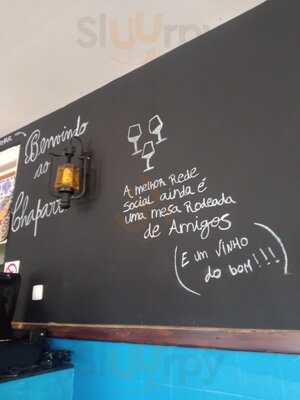 Benvindo
ao
A melhor Rede
social ainda é
uma mesa Rodeada
de Amigos
(E um vinho
do bom!!!)
Sluurpy
Sluurpy